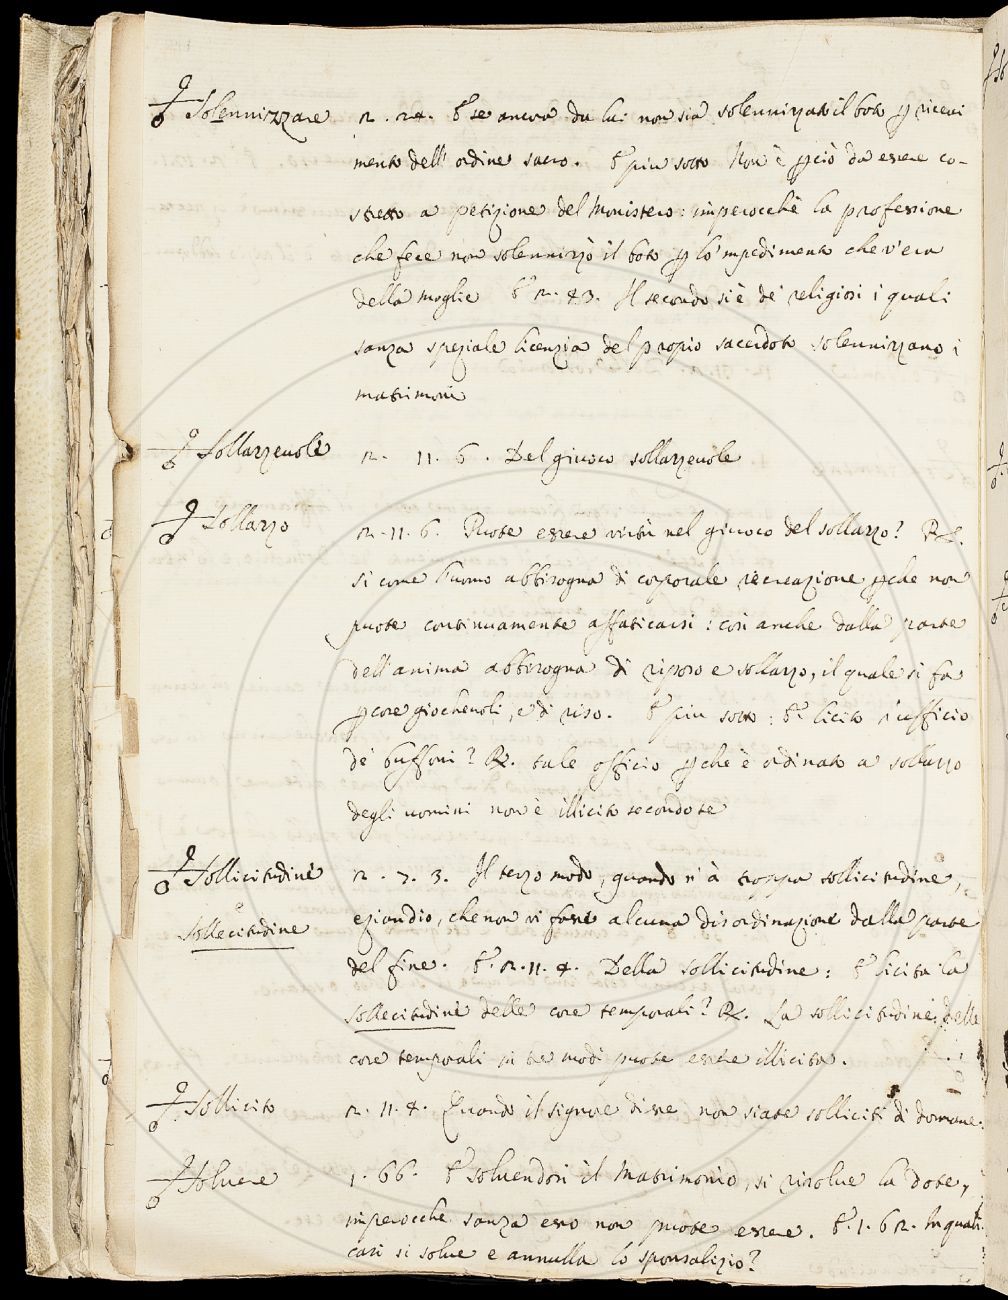 Solennizzare 2. 24. E se ancora da lui non sia solennizzato il boto p ricevi
mento dell'ordine sacro. E più sotto Non è pciò da essere co-
stretto a petizione del Monistero: imperocchè la professione
che fece non solennizzò il boto p lo 'mpedimento che v'era
della moglie E 2. 43. Il secondo si è de' religiosi i quali
sanza speziale licenzia del propio sacerdote solennizzano i
matrimoni
Sollazzevole 2. 11. 6. Del giuoco sollazzevole
Sollazzo 2. 11. 6. Puote essere virtù nel giuoco del sollazzo? R.
si come l'uomo abbisogna di corporale recreazione pche non
puote continuamente affaticarsi: così anche dalla parte
dell'anima abbisogna di riposo e sollazzo, il quale si fa
p cose giochevoli, e di riso. E più sotto: E licito l'ufficio
de' buffoni? R. tale officio pche è ordinato a sollazzo
degli uomini non è illicito secondo se
Sollicitudine 2. 7. 3. Il terzo modo, quando v'à troppa sollicitudine,
e
Sollecitudine eziandio, che non vi fosse alcuna disordinazione dalla parte
del fine. E. 2. 11. 4. Della sollicitudine: E licita la
sollecitudine delle cose temporali? R. La sollicitudine delle
cose temporali in tre modi puote essere illicita.
Sollicito 2. 11. 4. Quando il signore disse non siate solliciti di domane.
Solvere 1. 66. E solvendosi il Matrimonio, si risolve la dote,
imperocche sanza esso non puote essere. E. 1. 62. In quali
casi si solve e annulla lo sponsalizio?